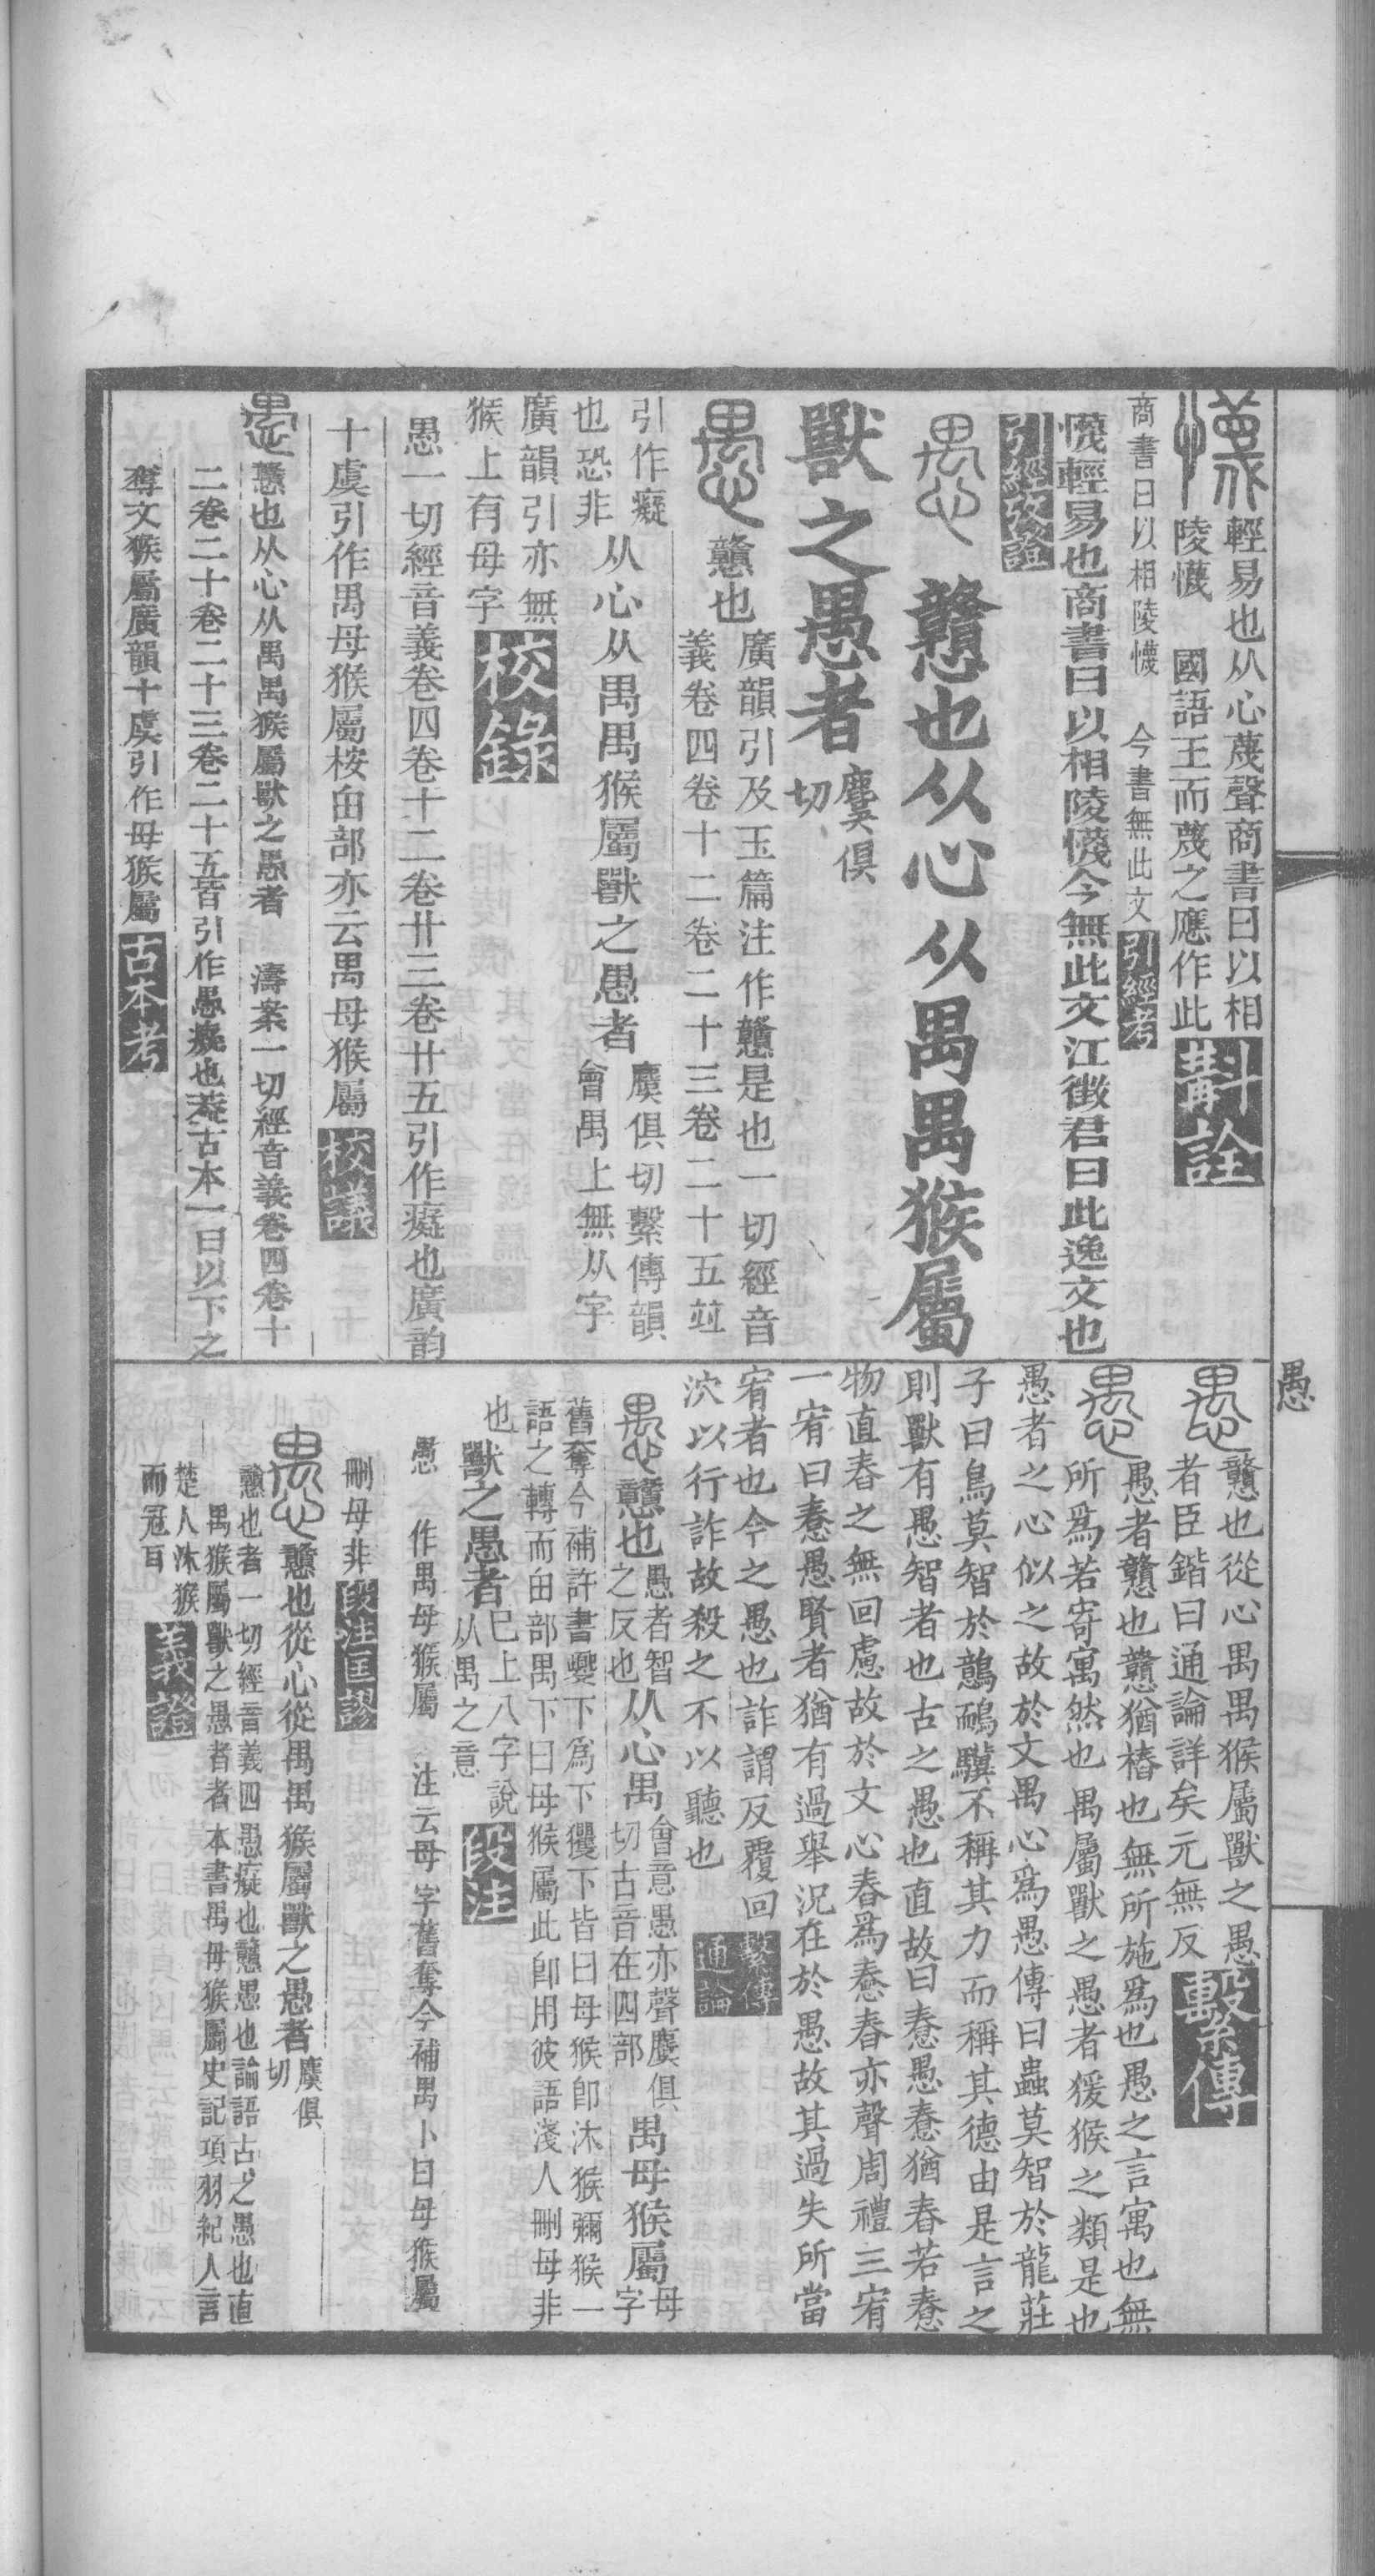 輕易也从心蔑聲商書曰以相
陵懱　國語王而蔑之應作此
斠詮
商書曰以相陵懱　今書無此文
引經考
懱輕易也商書曰以相陵懱今無此文江徵君曰此逸文也
引經攷證
愚
戇也从心从禺禺猴屬
獸之愚者
麌俱切
愚
戇也
廣韻引及玉篇注作戇是也一切經音
義卷四卷十二卷二十三卷二十五竝
引作癡
也恐非
从心从禺禺猴屬獸之愚者
麌俱切繫傳韻
會禺上無从字
廣韻引亦無
猴上有母字
校錄
愚一切經音義卷四卷十二卷廿三卷廿五引作癡也廣韵
十虞引作禺母猴屬桉甶部亦云禺母猴屬
校議
愚
戇也从心从禺禺猴屬獸之愚者　濤案一切經音義卷四卷十
二卷二十卷二十三卷二十五皆引作愚癡也葢古本一曰以下之
奪文猴屬廣韻十虞引作母猴屬
古本考
愚
愚
戇也從心禺禺猴屬獸之愚
者臣鍇曰通論詳矣元無反
繫傳
愚
愚者戇也戇猶樁也無所施爲也愚之言寓也無
所爲若寄寓然也禺屬獸之愚者猨猴之類是也
愚者之心似之故於文禺心爲愚傳曰蟲莫智於龍莊
子曰鳥莫智於鷾鴯驥不稱其力而稱其德由是言之
則獸有愚智者也古之愚也直故曰惷愚惷猶舂若惷
物直舂之無回慮故於文心舂爲惷舂亦聲周禮三宥
一宥曰惷愚賢者猶有過舉況在於愚故其過失所當
宥者也今之愚也詐謂反覆回
泬以行詐故殺之不以聽也
繫傳通論
愚
戇也
愚者智
之反也
从心禺
會意愚亦聲麌俱
切古音在四部
禺母猴屬
母字
舊奪今補許書夒下爲下玃下皆曰母猴卽沐猴獼猴一
語之轉而甶部禺下曰母猴屬此卽用彼語淺人刪母非
也
獸之愚者
已上八字說
从禺之意
段注
愚　作禺母猴屬　注云母字舊奪今補禺卜曰母猴屬
刪母非
段注匡謬
愚
戇也從心從禺禺猴屬獸之愚者
麌俱切
戇也者一切經音義四愚癡也戇愚也論語古之愚也直
禺猴屬獸之愚者者本書禺母猴屬史記項羽紀人言
楚人沐猴
而冠耳
義證